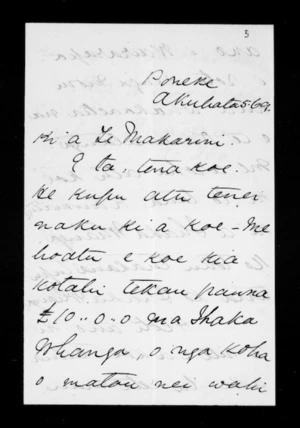 5
Poneke
Akuhata 5. 69.
Ki a Te Makarini.
E ta, tena koe.
He kupu atu tenei
naku ki a koe - Me
hoatu e koe kia
kotahi tekau pauna
£10..0..0 ma Ihaka
Whanga, o nga koha
o matou nei wahi